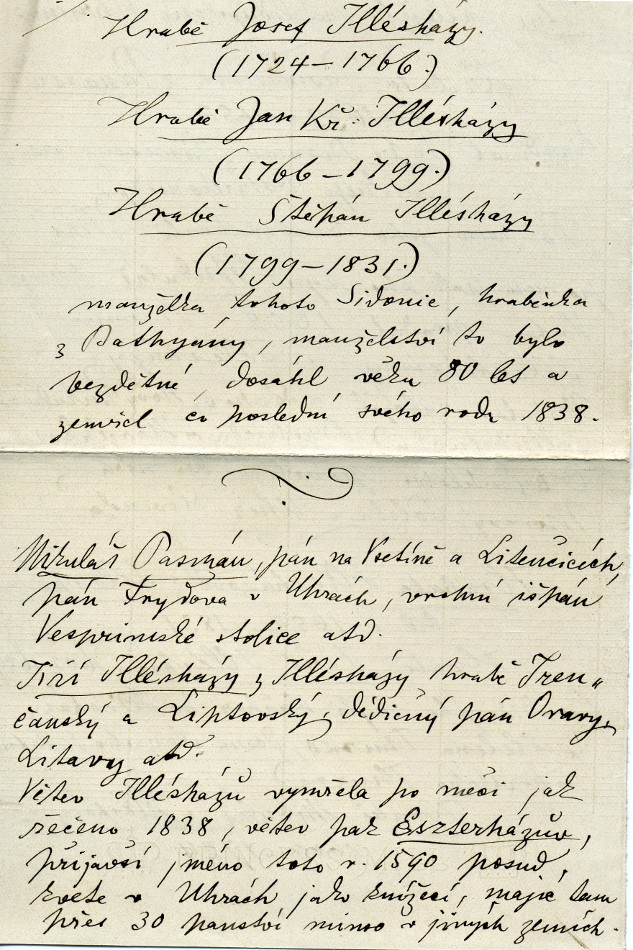 Hrabě Josef Illésházy.
(1724–1766.)
Hrabě Jan Kř. Illésházy
(1766–1799.)
Hrabě Štěpán Illésházy
(1799–1831.)
manželka tohoto Sidonie, hraběnka
z Bathyány, manželství to bylo
bezdětné dosáhl věku 80 let a
zemřel co poslední svého rodu 1838.
Mikuláš Pazmán, pán na Vsetíně a Litenčicích,
pán Frydova v Uhrách, vrchní išpán
Vesprimské stolice atd.
Jiří Illésházy z Illésházy hrabě Tren„
čanský a Liptovský, dědičný pán Oravy,
Litavy atd.
Větev Illésházů vymřela po meči jak
řečeno 1838, větev pak Eszterházův,
přijavší jmeno toto r. 1590 posud,
kvete v Uhrách jako knížecí, majíc tam
přes 30 panství mimo v jiných zemích.